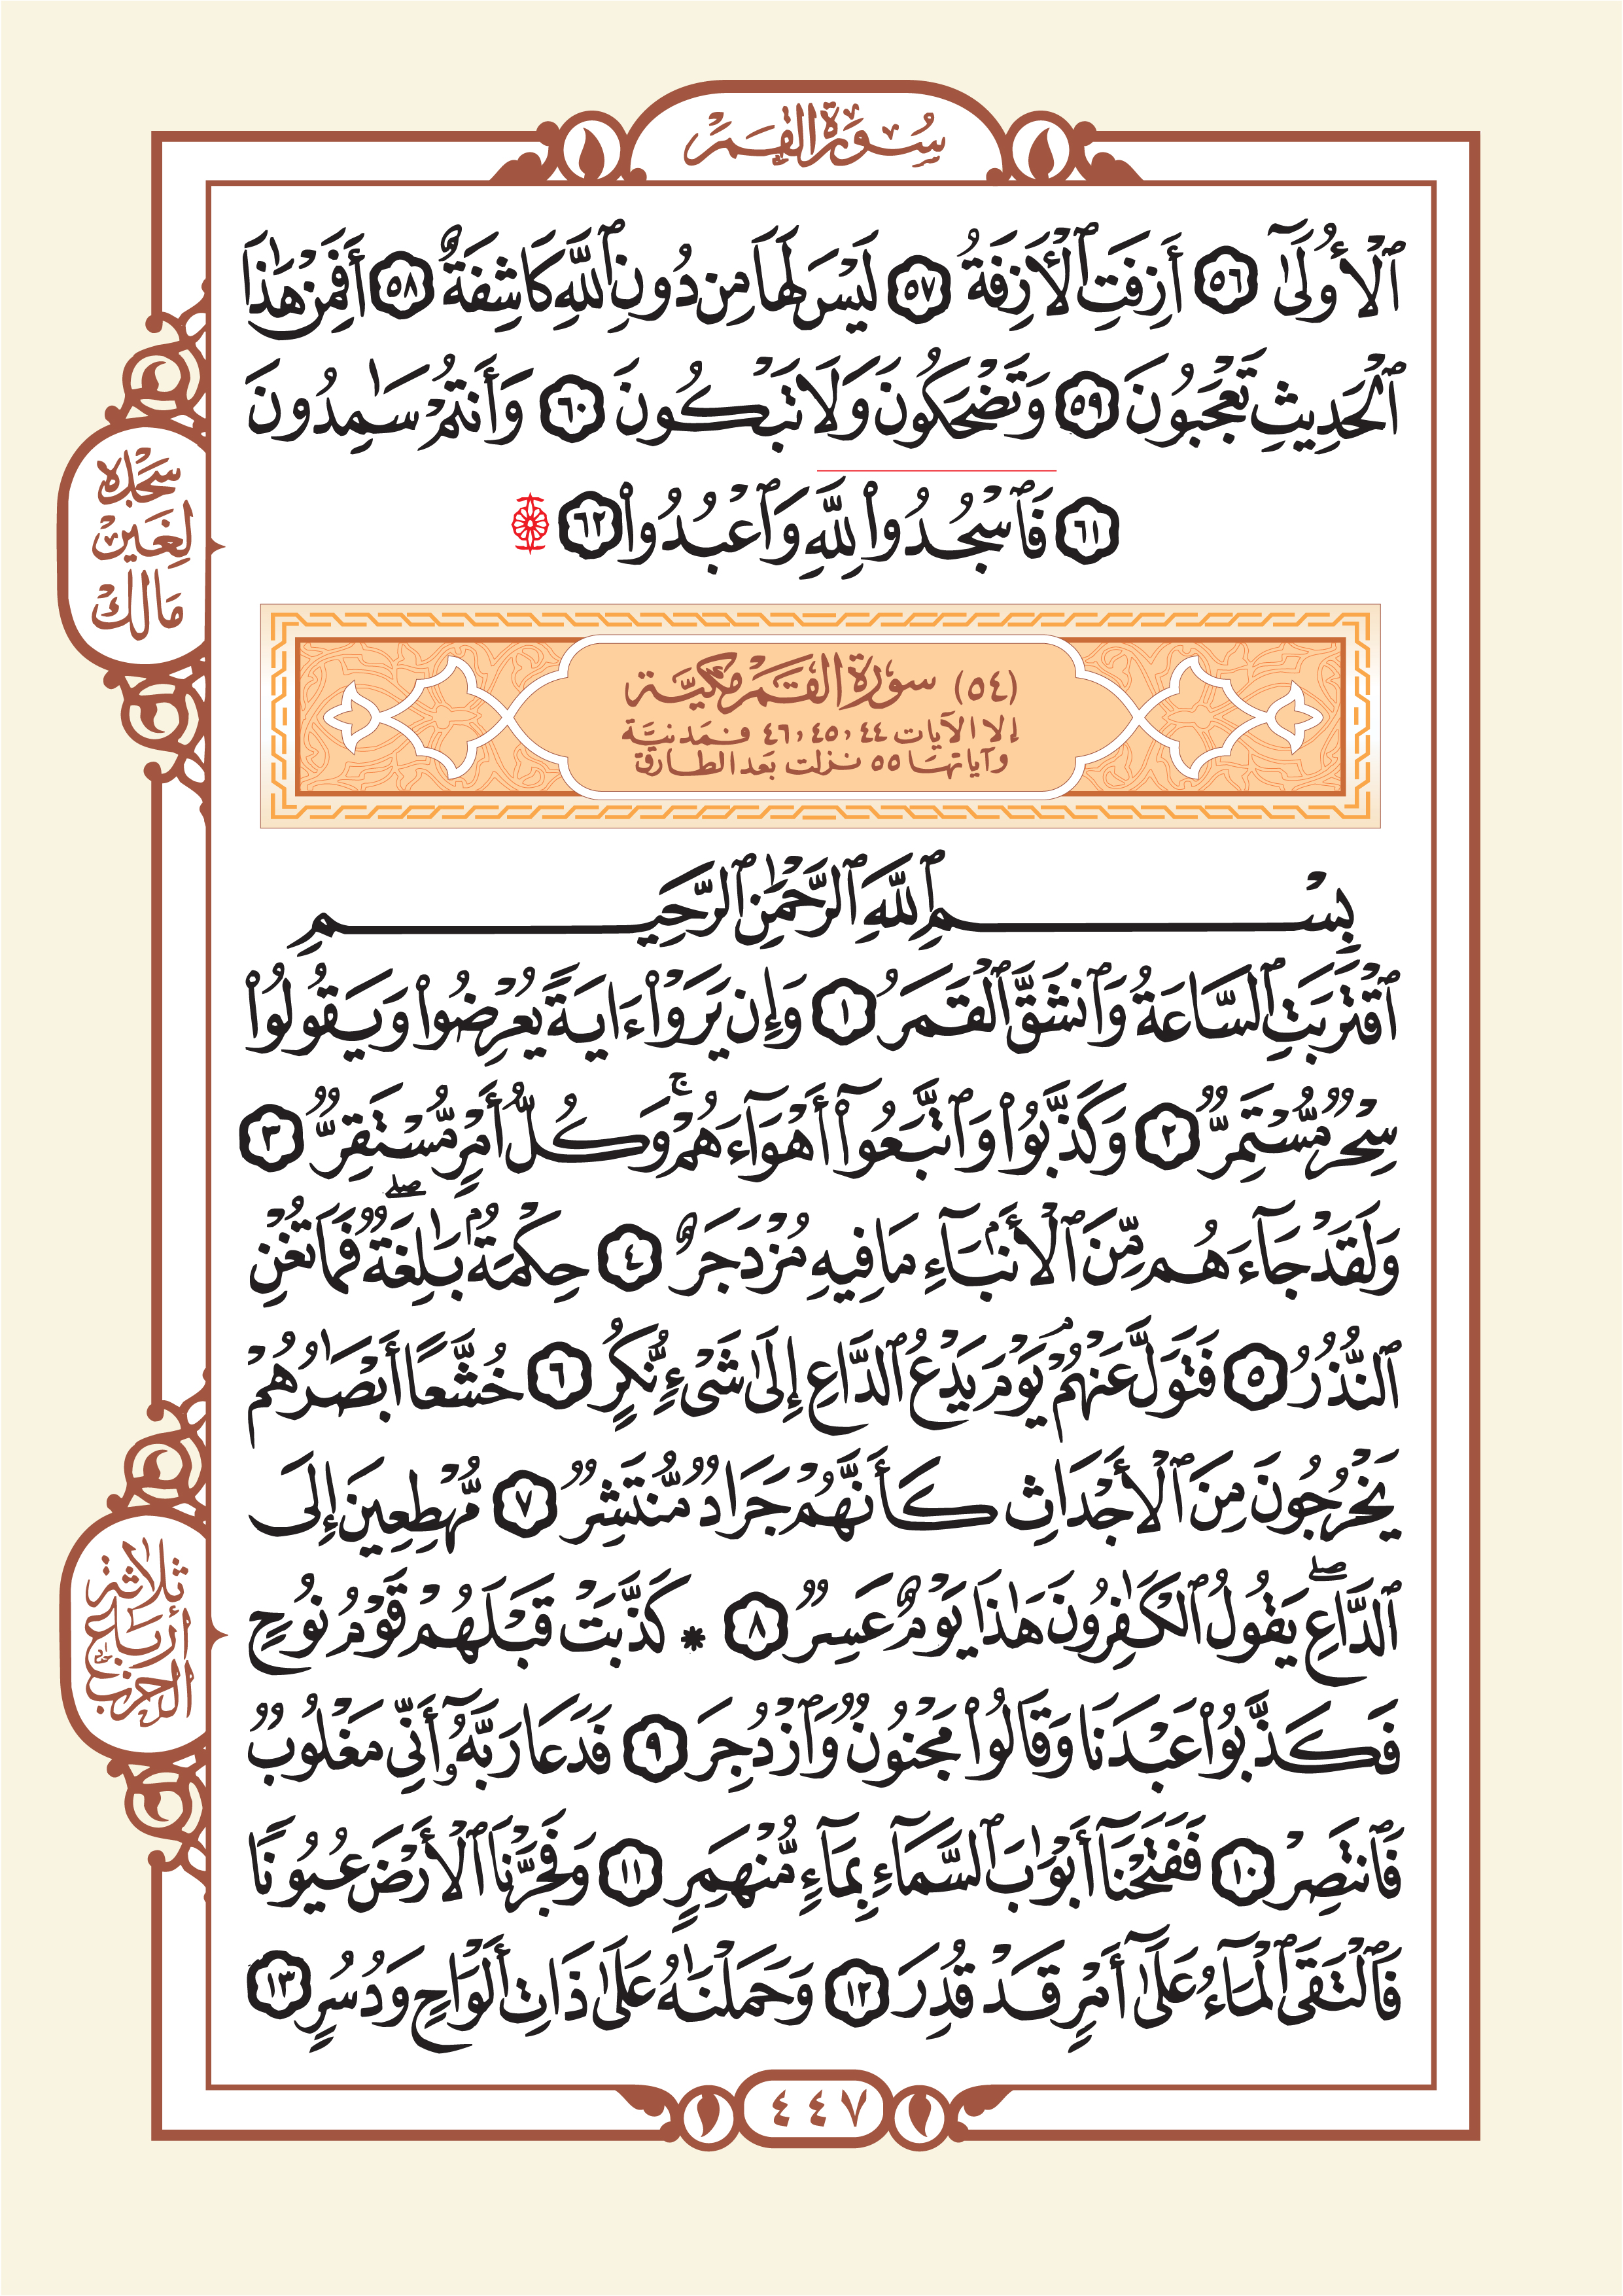 سُورَةُ القَمَرِ
ٱلْأُولَىٰٓ ٥٦ أَزِفَتِ ٱلْأَزِفَةُ ٥٧ لَيْسَ لَهَا مِن دُونِ ٱللَّهِ كَاشِفَةٌ ٥٨ أَفَمِنْ هَٰذَا
ٱلْحَدِيثِ تَعْجَبُونَ ٥٩ وَتَضْحَكُونَ وَلَا تَبْكُونَ ٦٠ وَأَنتُمْ سَٰمِدُونَ
٦١ فَٱسْجُدُوا۟ لِلَّهِ وَٱعْبُدُوا۟ ٦٢
سجدة
لغير
مالك
(٥٤) سورة القمر مكية
إلا الآيات ٤٤، ٤٥، ٤٦ فمدنية
وآياتها ٥٥ نزلت بعد الطارق
بِسْمِ ٱللَّهِ ٱلرَّحْمَٰنِ ٱلرَّحِيمِ
ٱقْتَرَبَتِ ٱلسَّاعَةُ وَٱنشَقَّ ٱلْقَمَرُ ١ وَإِن يَرَوْا۟ ءَايَةً يُعْرِضُوا۟ وَيَقُولُوا۟
سِحْرٌ مُّسْتَمِرٌّ ٢ وَكَذَّبُوا۟ وَٱتَّبَعُوٓا۟ أَهْوَآءَهُمْ ۚ وَكُلُّ أَمْرٍ مُّسْتَقِرٌّ ٣
وَلَقَدْ جَآءَهُم مِّنَ ٱلْأَنۢبَآءِ مَا فِيهِ مُزْدَجَرٌ ٤ حِكْمَةٌۢ بَٰلِغَةٌ ۖ فَمَا تُغْنِ
ٱلنُّذُرُ ٥ فَتَوَلَّ عَنْهُمْ ۘ يَوْمَ يَدْعُ ٱلدَّاعِ إِلَىٰ شَىْءٍ نُّكُرٍ ٦ خُشَّعًا أَبْصَٰرُهُمْ
يَخْرُجُونَ مِنَ ٱلْأَجْدَاثِ كَأَنَّهُمْ جَرَادٌ مُّنتَشِرٌ ٧ مُّهْطِعِينَ إِلَى
ٱلدَّاعِ ۖ يَقُولُ ٱلْكَٰفِرُونَ هَٰذَا يَوْمٌ عَسِرٌ ٨ * كَذَّبَتْ قَبْلَهُمْ قَوْمُ نُوحٍ
ثلاثة
أرباع
الحزب
فَكَذَّبُوا۟ عَبْدَنَا وَقَالُوا۟ مَجْنُونٌ وَٱزْدُجِرَ ٩ فَدَعَا رَبَّهُۥٓ أَنِّى مَغْلُوبٌ
فَٱنتَصِرْ ١٠ فَفَتَحْنَآ أَبْوَٰبَ ٱلسَّمَآءِ بِمَآءٍ مُّنْهَمِرٍ ١١ وَفَجَّرْنَا ٱلْأَرْضَ عُيُونًا
فَٱلْتَقَى ٱلْمَآءُ عَلَىٰٓ أَمْرٍ قَدْ قُدِرَ ١٢ وَحَمَلْنَٰهُ عَلَىٰ ذَاتِ أَلْوَٰحٍ وَدُسُرٍ ١٣
٤٤٧